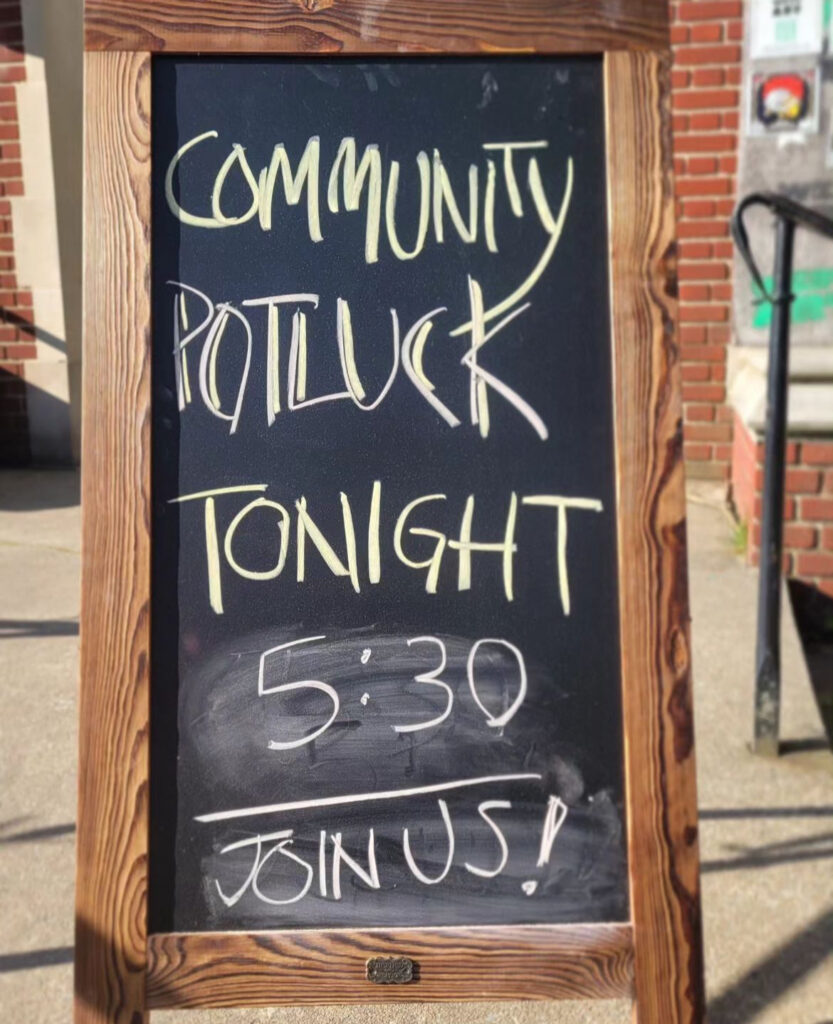 COMMUNITY
POTLUCK
TONIGHT
5:30
JOIN US!